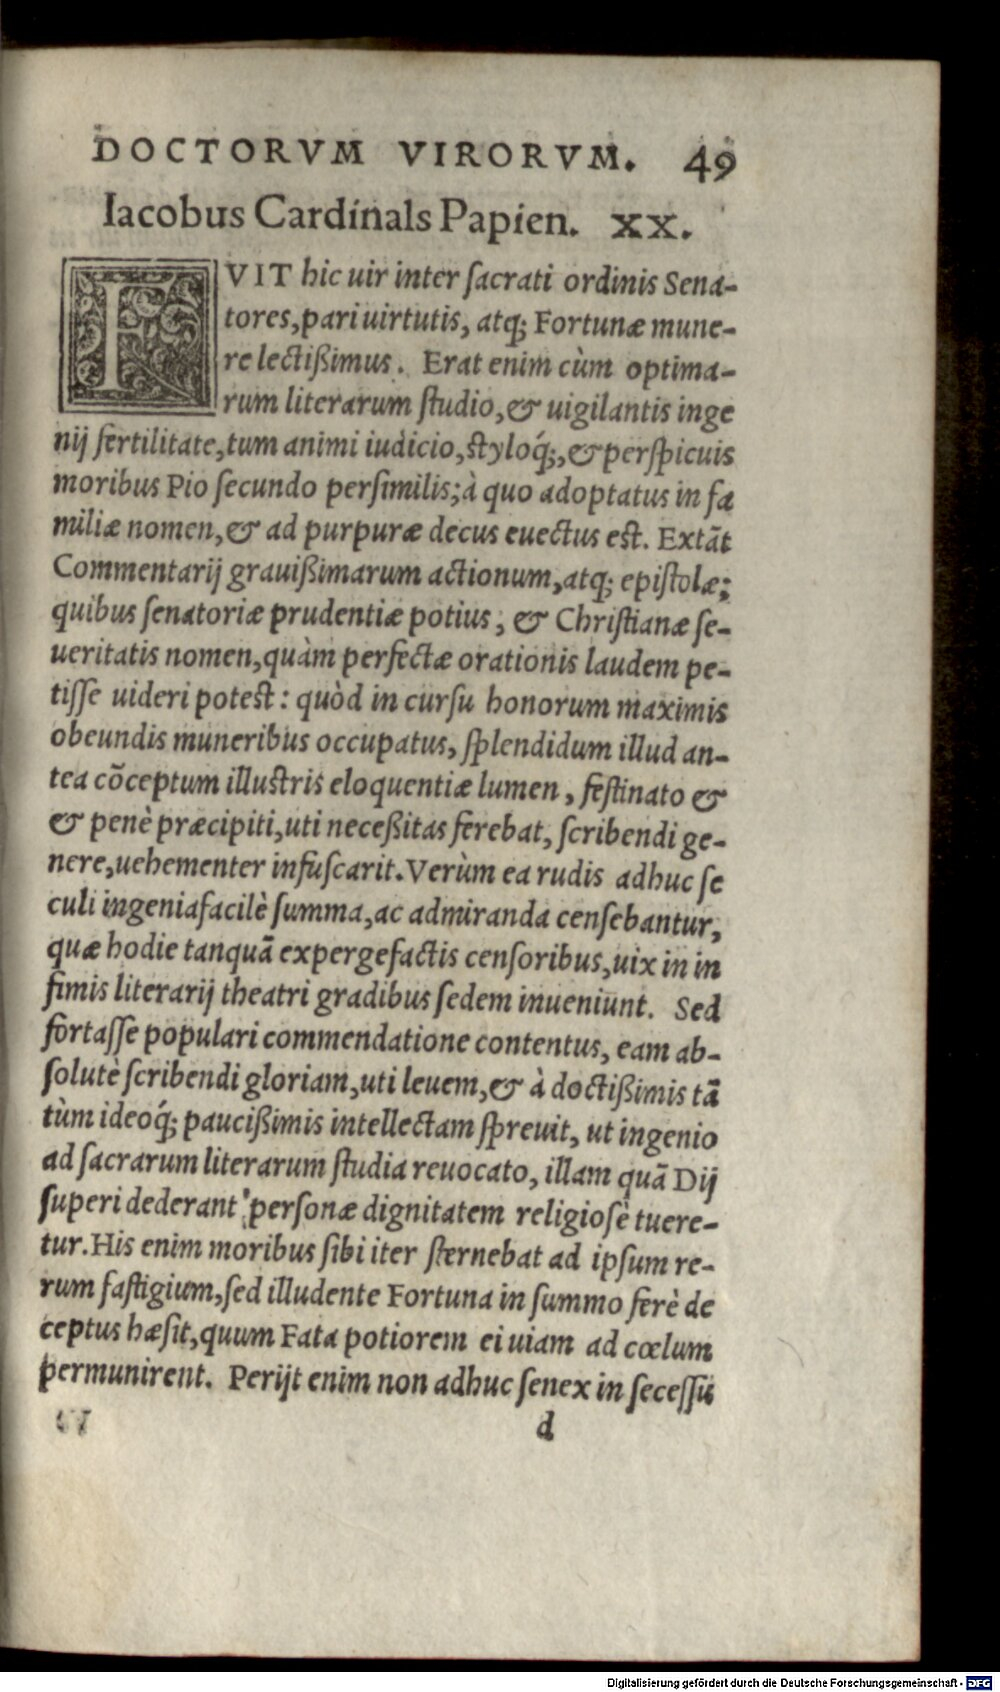 DOCTORVM VIRORVM. 49
Iacobus Cardinals Papien. XX.
FVIT hic uir inter sacrati ordinis Sena-
tores, pari uirtutis, atq; Fortunæ mune-
re lectißimus. Erat enim cùm optima-
rum literarum studio, & uigilantis inge
nij fertilitate, tum animi iudicio, styloq́;, & perspicuis
moribus Pio secundo persimilis; à quo adoptatus in fa
miliæ nomen, & ad purpuræ decus euectus est. Extãt
Commentarij grauißimarum actionum, atq; epistolæ;
quibus senatoriæ prudentiæ potius, & Christianæ se-
ueritatis nomen, quàm perfectæ orationis laudem pe-
tisse uideri potest: quòd in cursu honorum maximis
obeundis muneribus occupatus, splendidum illud an-
tea cõceptum illustris eloquentiæ lumen, festinato &
& penè præcipiti, uti neceßitas ferebat, scribendi ge-
nere, uehementer infuscarit. Verùm ea rudis adhuc se
culi ingenia facilè summa, ac admiranda censebantur,
quæ hodie tanquã expergefactis censoribus, uix in in
fimis literarij theatri gradibus sedem inueniunt. Sed
fortasse populari commendatione contentus, eam ab-
solutè scribendi gloriam, uti leuem, & à doctißimis tã
tùm ideoq́; paucißimis intellectam spreuit, ut ingenio
ad sacrarum literarum studia reuocato, illam quã Dij
superi dederant personæ dignitatem religiosè tuere-
tur. His enim moribus sibi iter sternebat ad ipsum re-
rum fastigium, sed illudente Fortuna in summo ferè de
ceptus hæsit, quum Fata potiorem ei uiam ad cœlum
permunirent. Perijt enim non adhuc senex in secessu
d
Digitalisierung gefördert durch die Deutsche Forschungsgemeinschaft - DFG